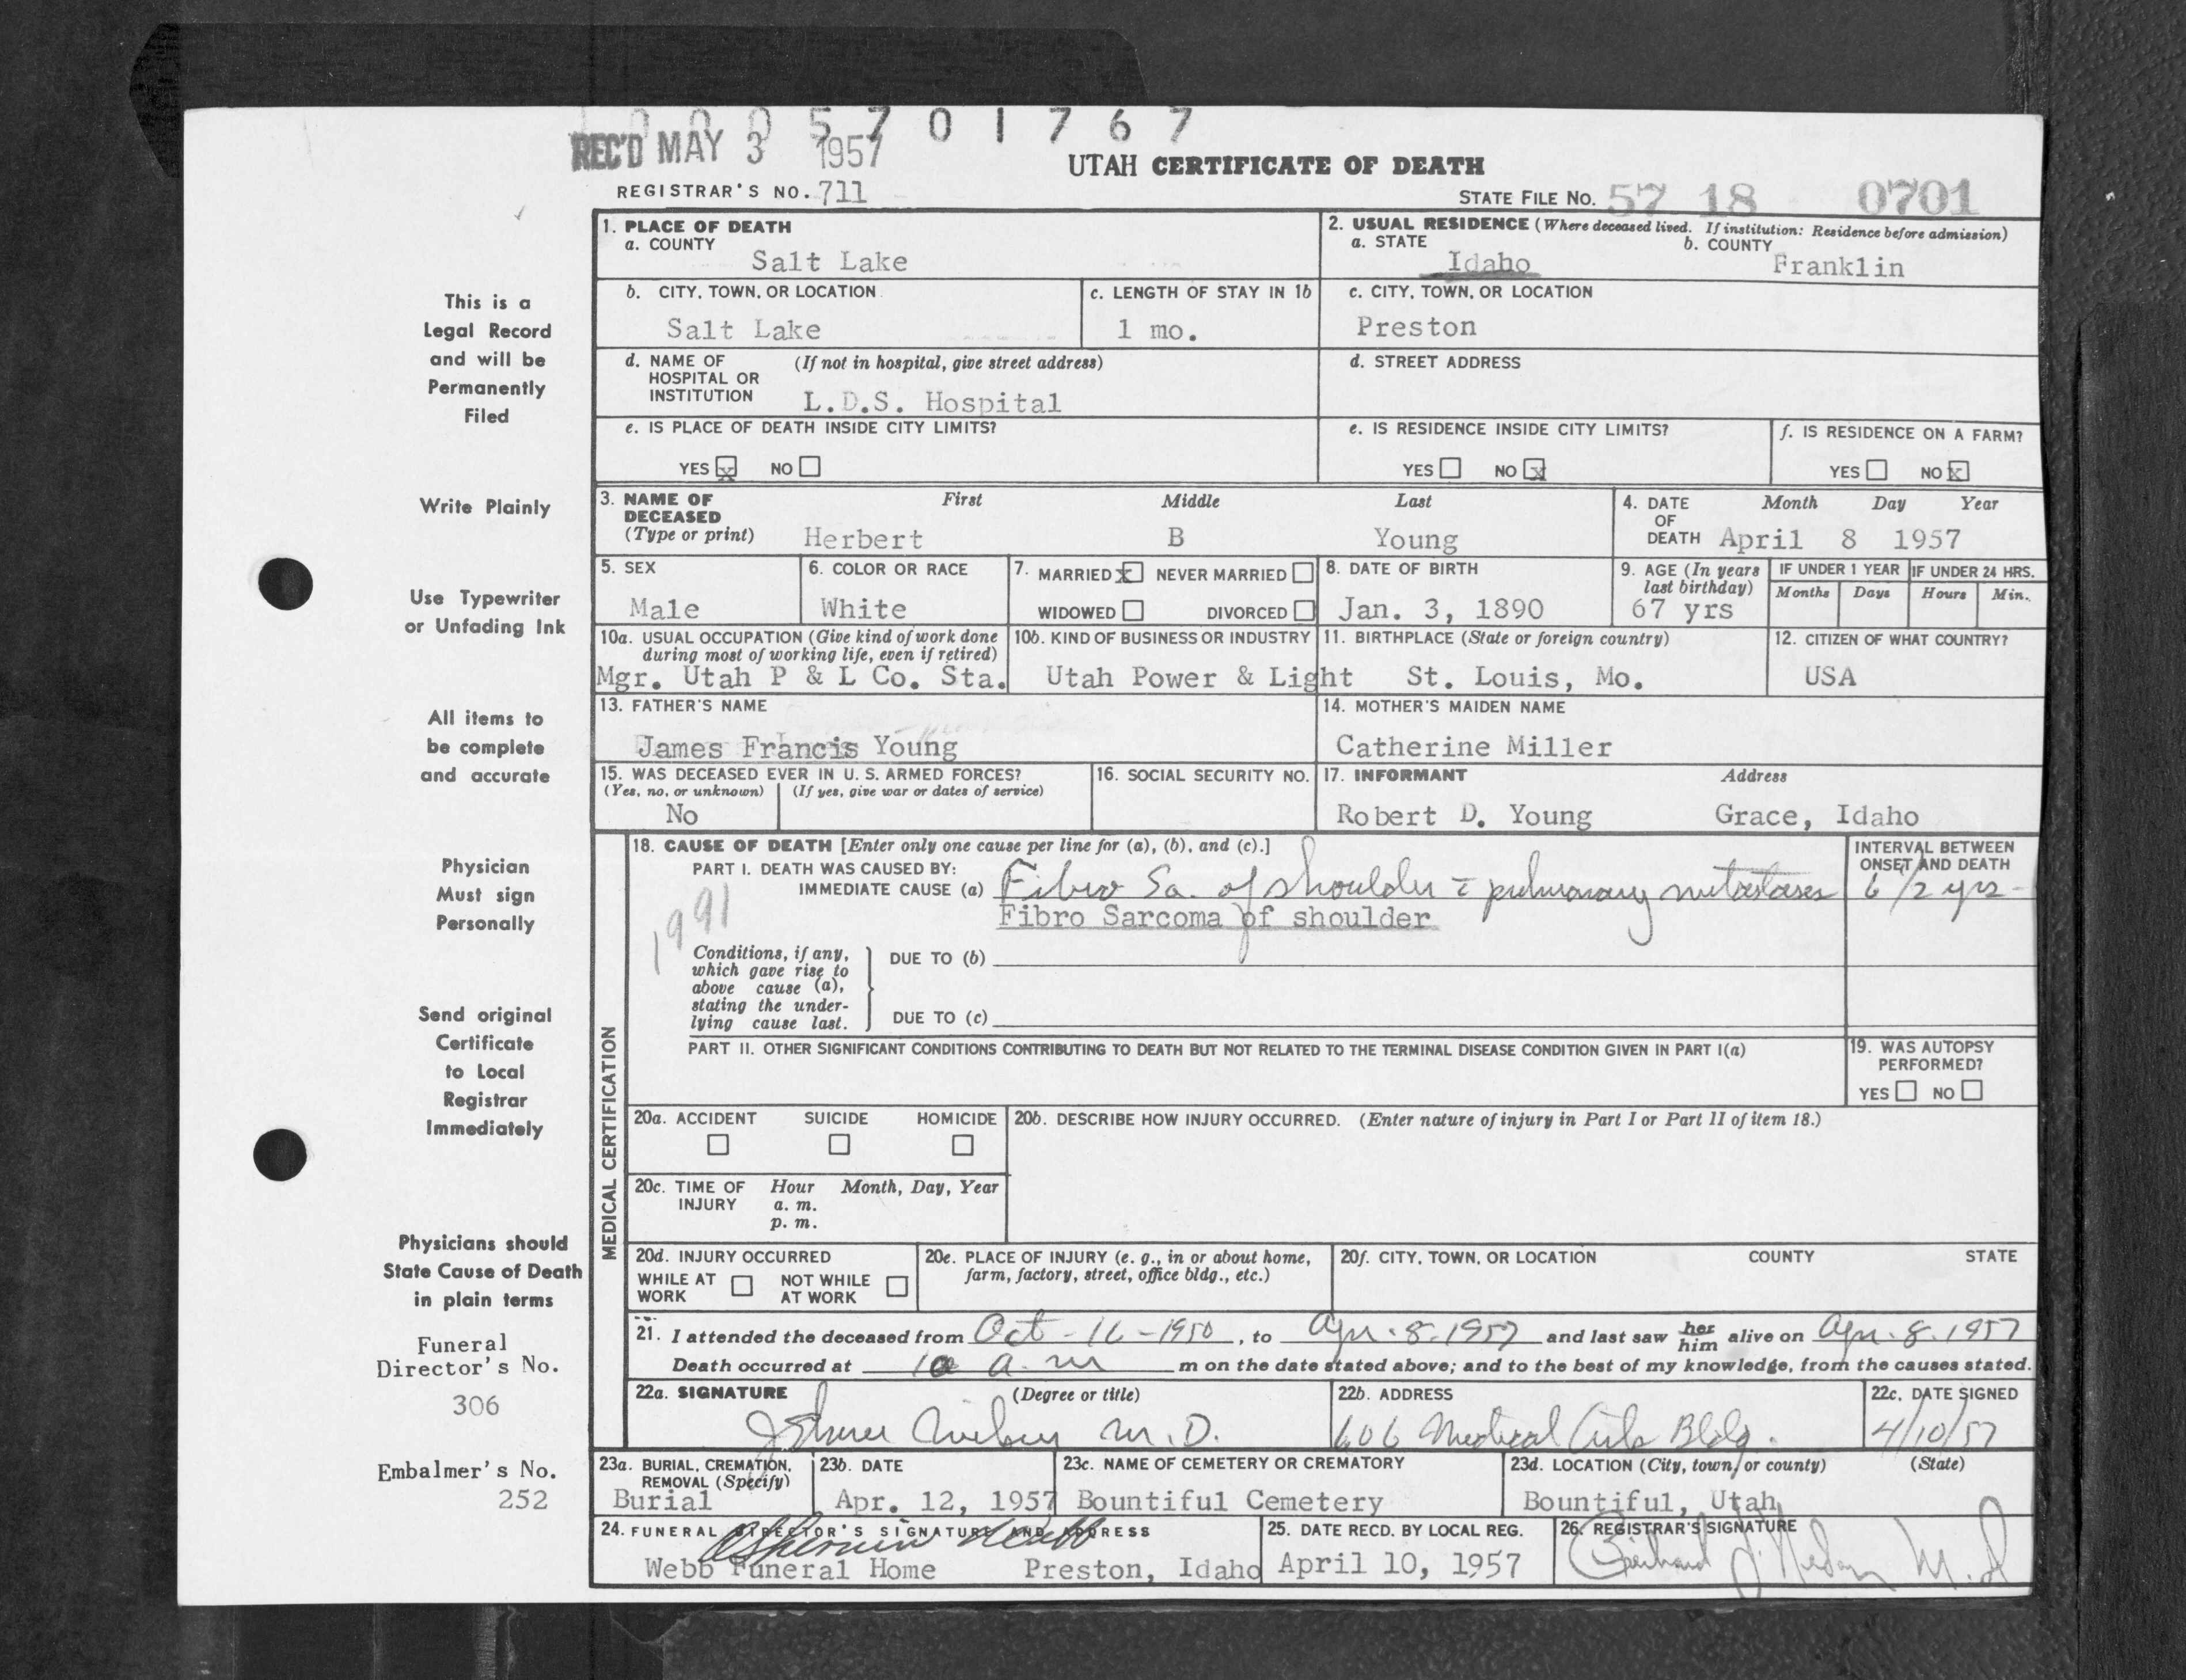 0 0 0 5 7 0 1 7 6 7
REC'D MAY 3 1957
UTAH CERTIFICATE OF DEATH
REGISTRAR'S NO. 711
STATE FILE NO. 57 18 0701
1. PLACE OF DEATH
a. COUNTY
Salt Lake
2. USUAL RESIDENCE (Where deceased lived. If institution: Residence before admission)
a. STATE b. COUNTY
Idaho Franklin
b. CITY, TOWN, OR LOCATION
Salt Lake
c. LENGTH OF STAY IN 1b
1 mo.
c. CITY, TOWN, OR LOCATION
Preston
d. NAME OF (If not in hospital, give street address)
HOSPITAL OR
INSTITUTION L.D.S. Hospital
d. STREET ADDRESS
e. IS PLACE OF DEATH INSIDE CITY LIMITS?
YES x NO
e. IS RESIDENCE INSIDE CITY LIMITS?
YES NO x
f. IS RESIDENCE ON A FARM?
YES NO x
3. NAME OF DECEASED First Middle Last
(Type or print) Herbert B Young
4. DATE OF DEATH Month Day Year
April 8 1957
5. SEX
Male
6. COLOR OR RACE
White
7. MARRIED x NEVER MARRIED
WIDOWED DIVORCED
8. DATE OF BIRTH
Jan. 3, 1890
9. AGE (In years last birthday)
67 yrs
IF UNDER 1 YEAR IF UNDER 24 HRS.
Months Days Hours Min.
10a. USUAL OCCUPATION (Give kind of work done
during most of working life, even if retired)
Mgr. Utah P & L Co. Sta.
10b. KIND OF BUSINESS OR INDUSTRY
Utah Power & Light
11. BIRTHPLACE (State or foreign country)
St. Louis, Mo.
12. CITIZEN OF WHAT COUNTRY?
USA
13. FATHER'S NAME
James Francis Young
14. MOTHER'S MAIDEN NAME
Catherine Miller
15. WAS DECEASED EVER IN U. S. ARMED FORCES?
(Yes, no, or unknown) (If yes, give war or dates of service)
No
16. SOCIAL SECURITY NO.
17. INFORMANT Address
Robert D. Young Grace, Idaho
MEDICAL CERTIFICATION
18. CAUSE OF DEATH [Enter only one cause per line for (a), (b), and (c).]
PART I. DEATH WAS CAUSED BY:
IMMEDIATE CAUSE (a) Fibro Sa. of shoulder c̄ pulmonary metastases
Fibro Sarcoma of shoulder
1991
INTERVAL BETWEEN
ONSET AND DEATH
6 1/2 yrs -
Conditions, if any,
which gave rise to
above cause (a),
stating the under-
lying cause last.
DUE TO (b)
DUE TO (c)
PART II. OTHER SIGNIFICANT CONDITIONS CONTRIBUTING TO DEATH BUT NOT RELATED TO THE TERMINAL DISEASE CONDITION GIVEN IN PART I(a)
19. WAS AUTOPSY
PERFORMED?
YES NO
20a. ACCIDENT SUICIDE HOMICIDE
20b. DESCRIBE HOW INJURY OCCURRED. (Enter nature of injury in Part I or Part II of item 18.)
20c. TIME OF INJURY Hour Month, Day, Year
a. m.
p. m.
20d. INJURY OCCURRED
WHILE AT WORK NOT WHILE AT WORK
20e. PLACE OF INJURY (e. g., in or about home,
farm, factory, street, office bldg., etc.)
20f. CITY, TOWN, OR LOCATION COUNTY STATE
21. I attended the deceased from Oct - 16 - 1950, to Apr. 8. 1957 and last saw her him alive on Apr. 8. 1957
Death occurred at 10 a.m m on the date stated above; and to the best of my knowledge, from the causes stated.
22a. SIGNATURE (Degree or title)
M.D.
22b. ADDRESS
606 Medical Arts Bldg.
22c. DATE SIGNED
4/10/57
23a. BURIAL, CREMATION,
REMOVAL (Specify)
Burial
23b. DATE
Apr. 12, 1957
23c. NAME OF CEMETERY OR CREMATORY
Bountiful Cemetery
23d. LOCATION (City, town, or county) (State)
Bountiful, Utah
24. FUNERAL DIRECTOR'S SIGNATURE AND ADDRESS
Webb Funeral Home Preston, Idaho
25. DATE RECD. BY LOCAL REG.
April 10, 1957
26. REGISTRAR'S SIGNATURE
M.D
This is a
Legal Record
and will be
Permanently
Filed
Write Plainly
Use Typewriter
or Unfading Ink
All items to
be complete
and accurate
Physician
Must sign
Personally
Send original
Certificate
to Local
Registrar
Immediately
Physicians should
State Cause of Death
in plain terms
Funeral
Director's No.
306
Embalmer's No.
252